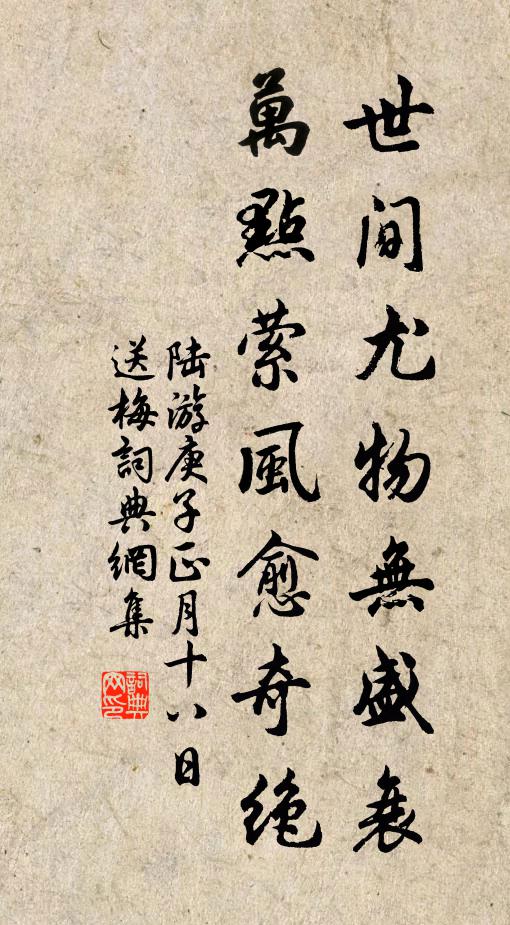 世間尤物無盛衰
萬點縈風愈奇絕
陸游庚子正月十八日
送梅詞典網集
詞典網印